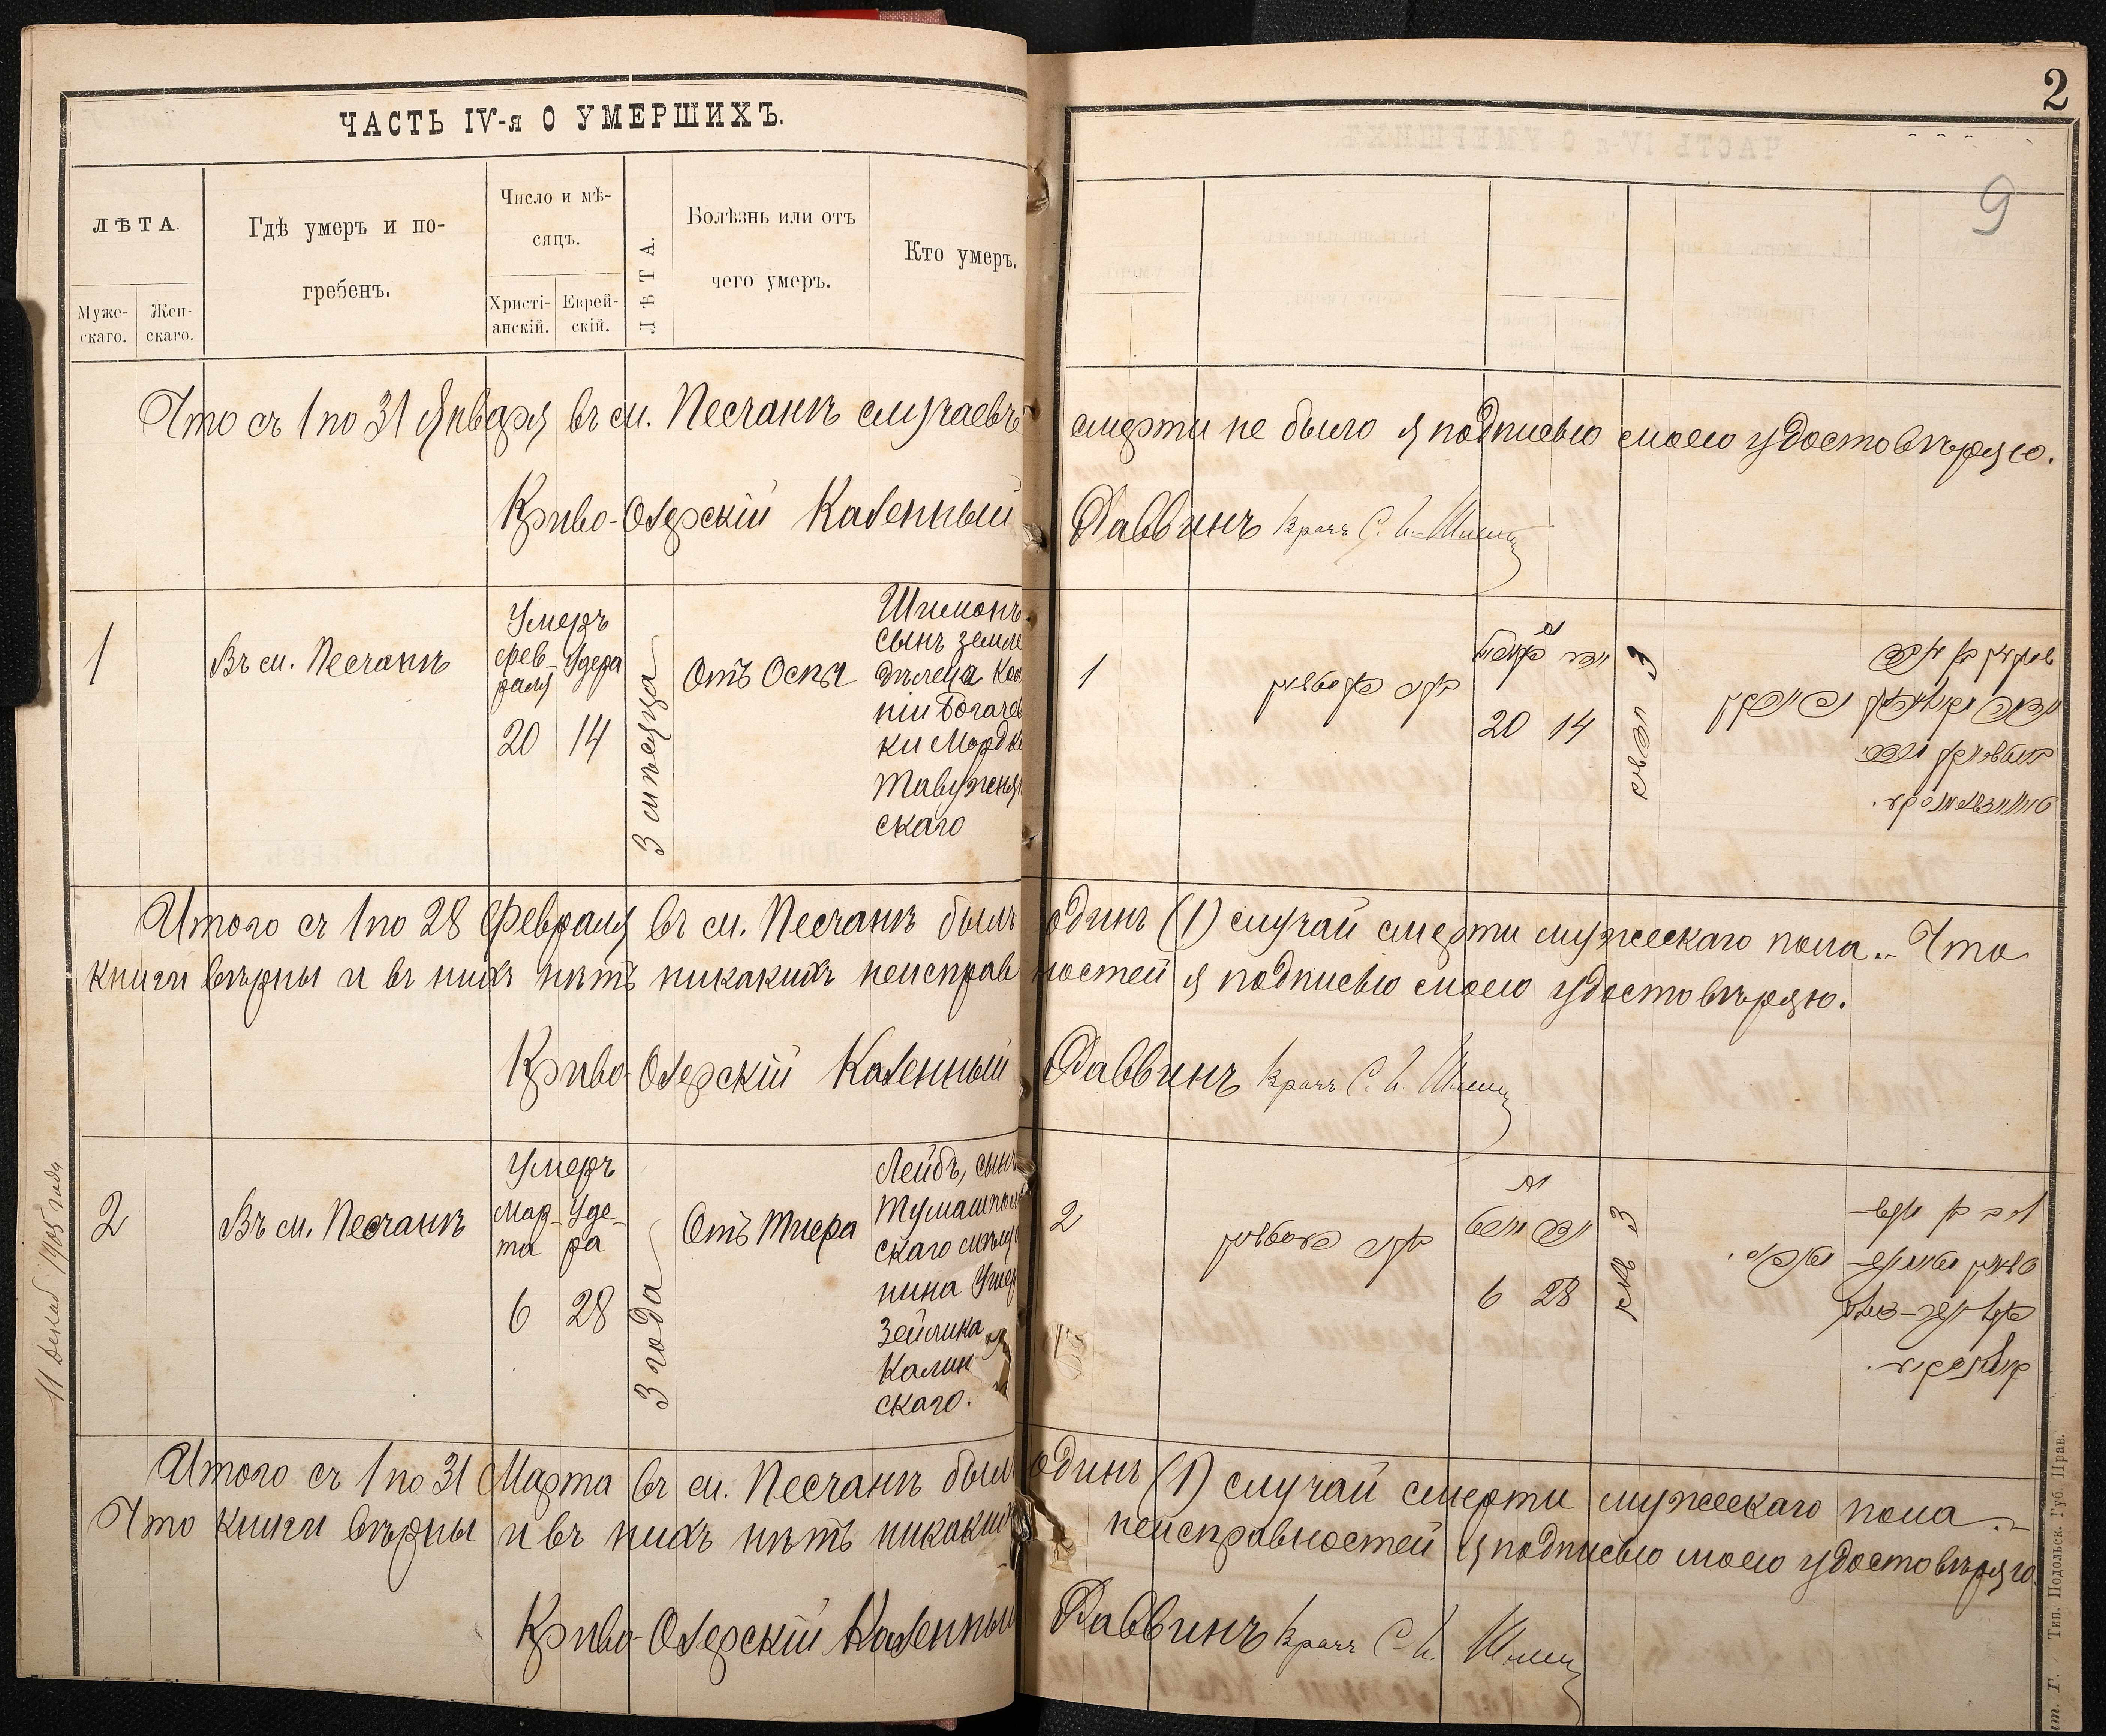 ЧАСТЬ IV-я О УМЕРШИХЪ.
2
9
ЛѢТА.
Муже-
скаго.
Жен-
скаго.
Гдѣ умеръ и по-
гребенъ.
Число и мѣ-
сяцъ.
Христі-
анскій.
Еврей-
скій.
ЛѢТА.
Болѣзнь или отъ
чего умеръ.
Кто умеръ.
Что съ 1 по 31 Января въ м. Песчанѣ случаевъ смерти не было я подписью моею удостовѣряю.
Криво-Озерскій Казенный Раввинъ Врачъ С. И.
1
Въ м. Песчанѣ
Умеръ
фев-
раля
20
Удера
14
3 мѣсяца
Отъ Оспы
Шимонъ
сынъ земле
дѣльца Кол
ніи Богачев
ки Мордка
Тавужнян
скаго
1
20 14
3
Итого съ 1 по 28 Февраля въ м. Песчанѣ былъ одинъ (1) случай смерти мужескаго пола.- Что
книги вѣрны и въ нихъ нѣтъ никакихъ неисправностей я подписью моею удостовѣряю.
Криво-Озерскій Казенный Раввинъ Врачъ С. И.
2
Въ м. Песчанѣ
Умеръ
Мар-
та
6
Уде-
ра
28
3 года
Отъ Тифа
Лейбъ, сынъ
Тумашполь
скаго мѣща
нина
Зейлика
Калин
скаго.
2
6 28
3
Итого съ 1 по 31 Марта въ м. Песчанѣ былъ одинъ (1) случай смерти мужескаго пола.-
Что книги вѣрны и въ нихъ нѣтъ никакихъ неисправностей я подписью моею удостовѣряю
Криво-Озерскій Казенный Раввинъ Врачъ С. И.
11 Декаб 1905 года
Тип. Подольск. Губ. Прав.